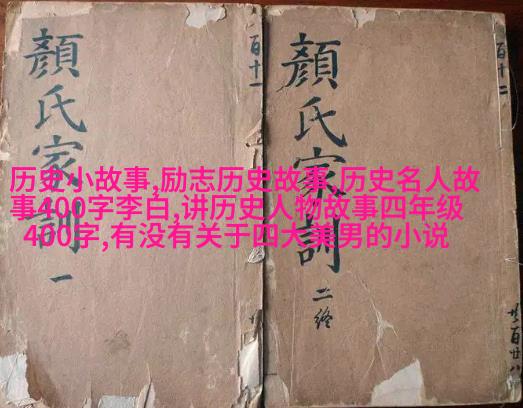 顔氏家訓 一
百十一
顔氏家訓 二終
百十二
廿百廿八
历史小故事,励志历史故事,历史名人故
事400字李白,讲历史人物故事四年级
400字,有没有关于四大美男的小说